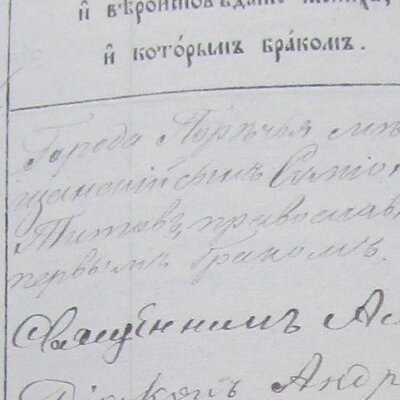 и҆ вѣроисповѣданіе жениха,
и҆ которымъ бракомъ.
Города Порѣчья мѣ
щанскій сынъ Симіо
Титовъ, православ
первымъ бракомъ.
Священникъ Ал
Діаконъ Андр